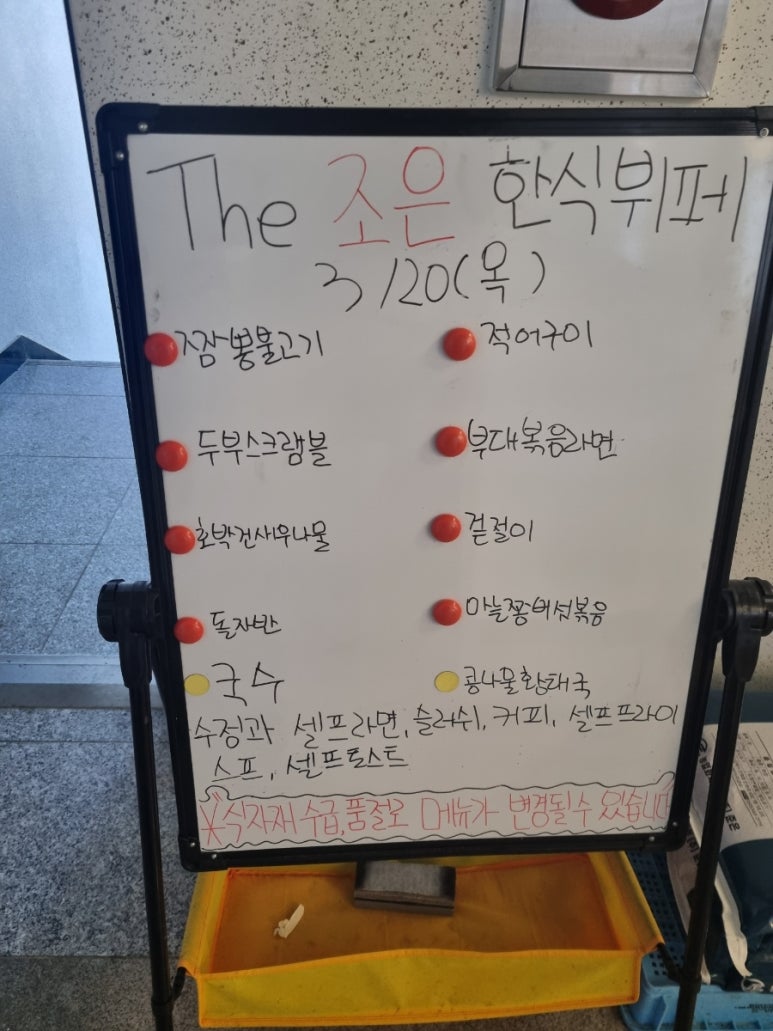 The 조은 한식뷔페
3/20(목)
짬뽕불고기 적어구이
두부스크램블 부대볶음라면
호박건새우나물 겉절이
돌자반 마늘쫑버섯볶음
국수 콩나물황태국
수정과 셀프라면, 슬러쉬, 커피, 셀프프라이
스프, 셀프토스트
※식자재 수급,품절로 메뉴가 변경될수 있습니다